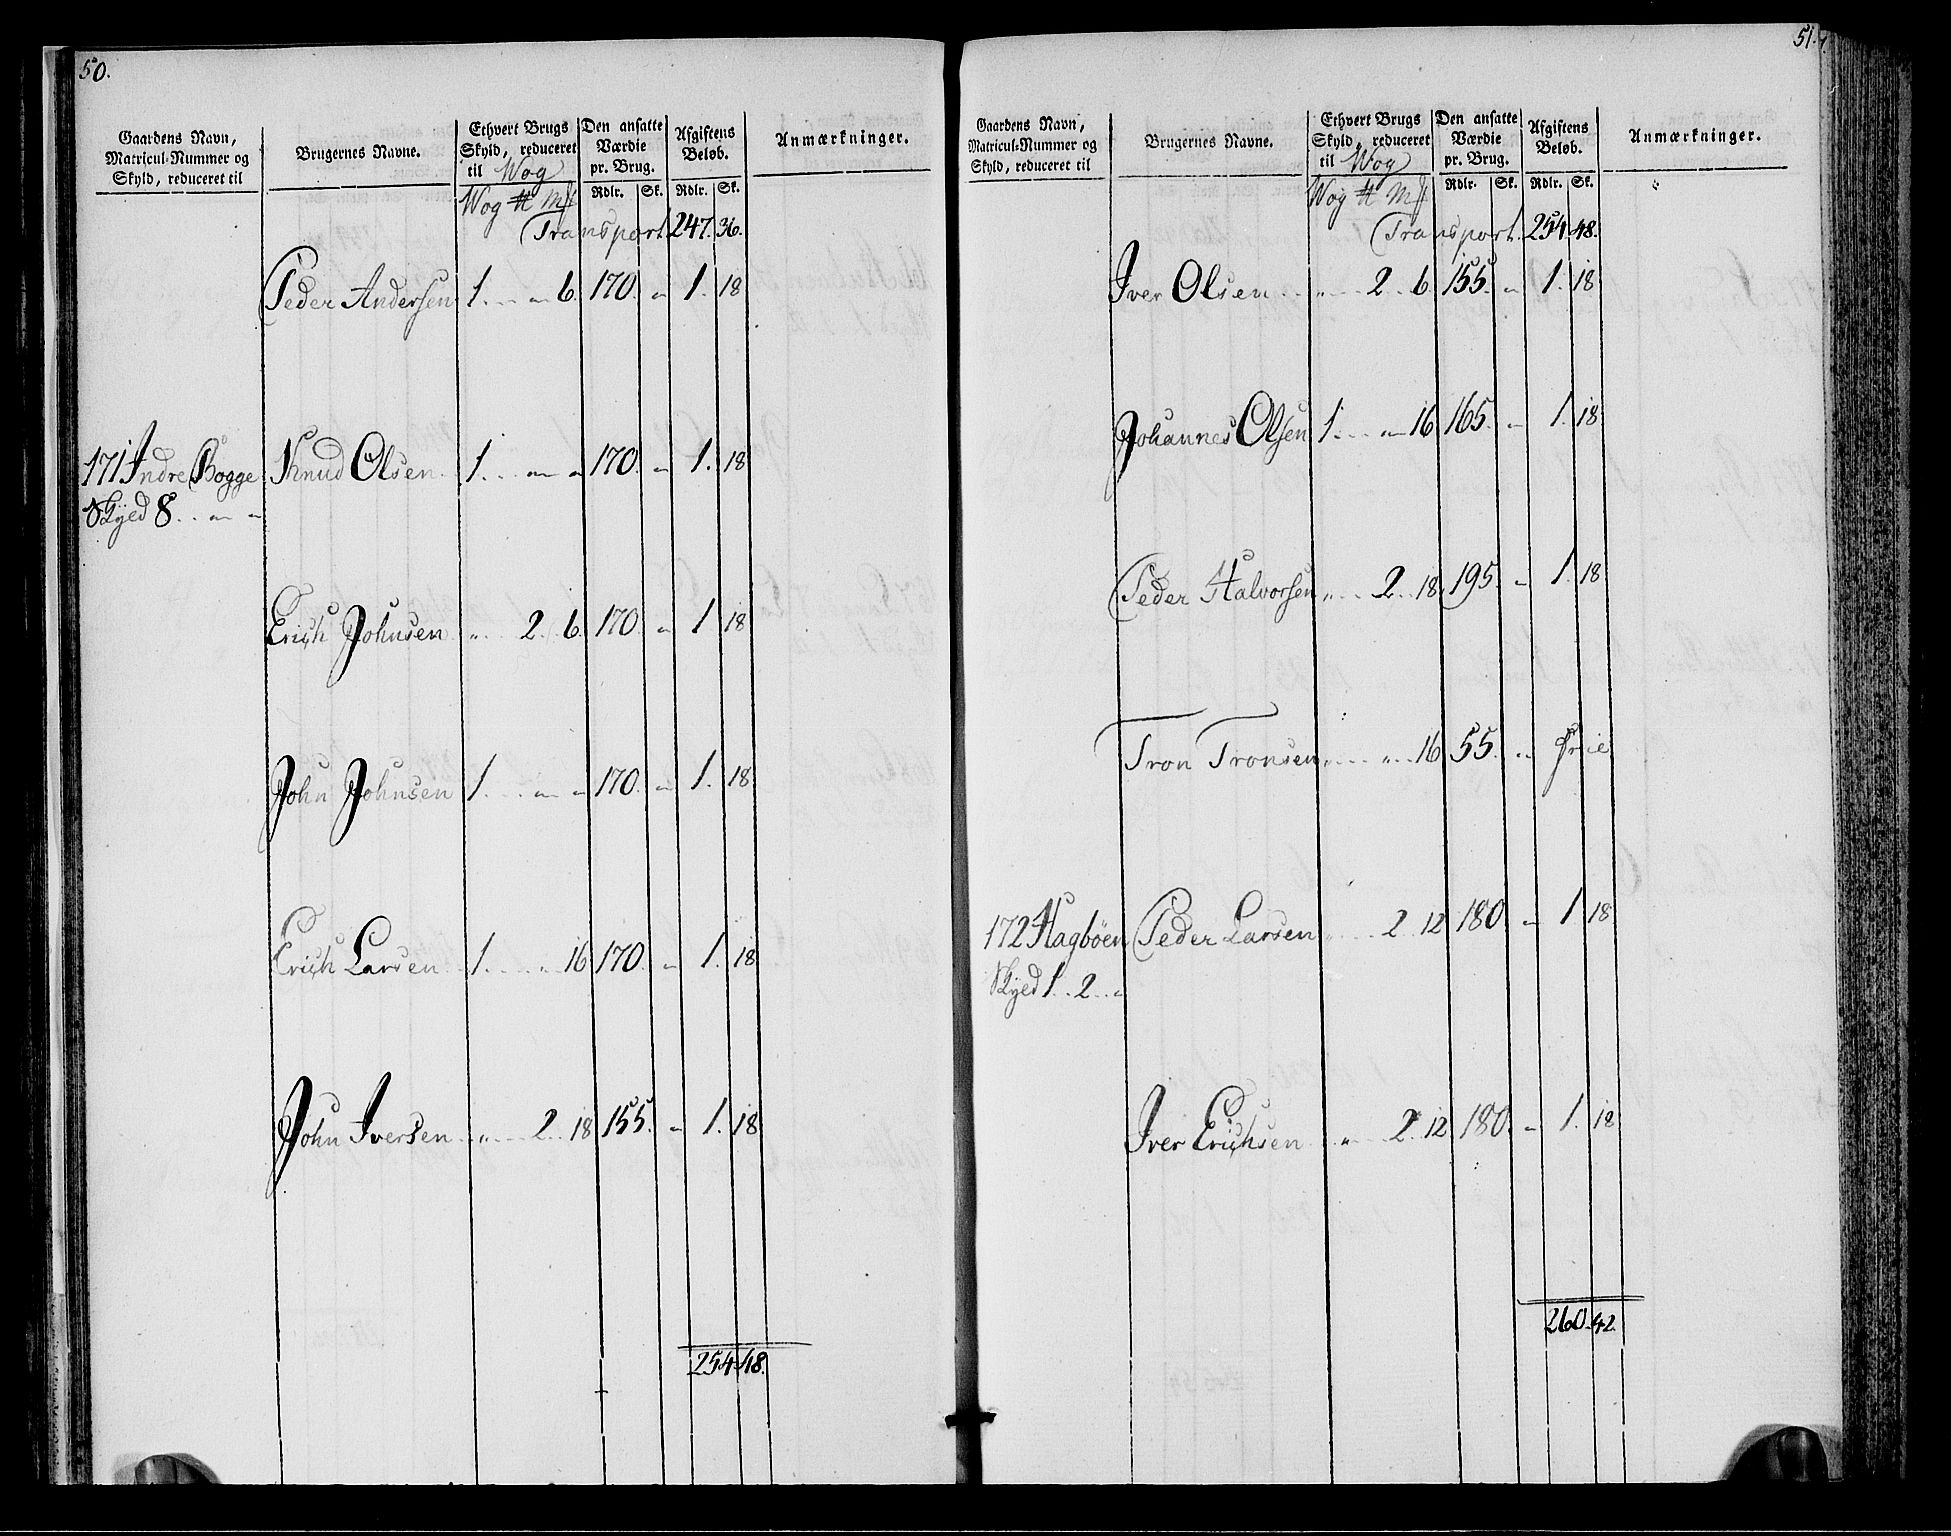 50.
Gaardens Navn,
Matricul-Nummer og
Skyld, reduceret til
Brugernes Navne.
Ethvert Brugs
Skyld, reduceret
til Wog
Den ansatte
Værdie
pr. Brug.
Afgiftens
Beløb.
Anmærkninger.
Wog ℔ Mf Rdlr. Sk. Rdlr. Sk.
Transport 247. 36.
Peder Andersen 1. . . „ 6. 170. „ 1. 18
171 Indre Bogge Knud Olsen 1. . . „ „ 170. „ 1. 18
Skyld 8. . „ „
Erich Johnsen „ . . 2. . 6. 170 „ 1 18
John Johnsen 1. . . „ „ 170. „ 1. 18
Erich Larsen 1. . . „ 16 170. „ 1. 18
John Iversen „ . . 2. . 18 155. „ 1. 18
254. 48.
51.
Gaardens Navn,
Matricul-Nummer og
Skyld, reduceret til
Brugernes Navne.
Ethvert Brugs
Skyld, reduceret
til Wog
Den ansatte
Værdie
pr. Brug.
Afgiftens
Beløb.
Anmærkninger.
Wog ℔ Mf Rdlr. Sk. Rdlr. Sk.
Transport. 254 48.
Iver Olsen „ . . 2. . 6 155. „ 1. 18
Johannes Olsen 1. . . „ 16 165. „ 1. 18
Peder Halvorsen „ . . 2. . 18 195. „ 1. 18
Tron Tronsen „ . . „ . . 16 55. „ Frie
172 Hagbøen Peder Larsen „ . . 2. . 12 180 „ 1 18
Skyld 1. . 2. . „
Iver Erichsen „ . . 2. . 12 180. „ 1. 18
260. 42.